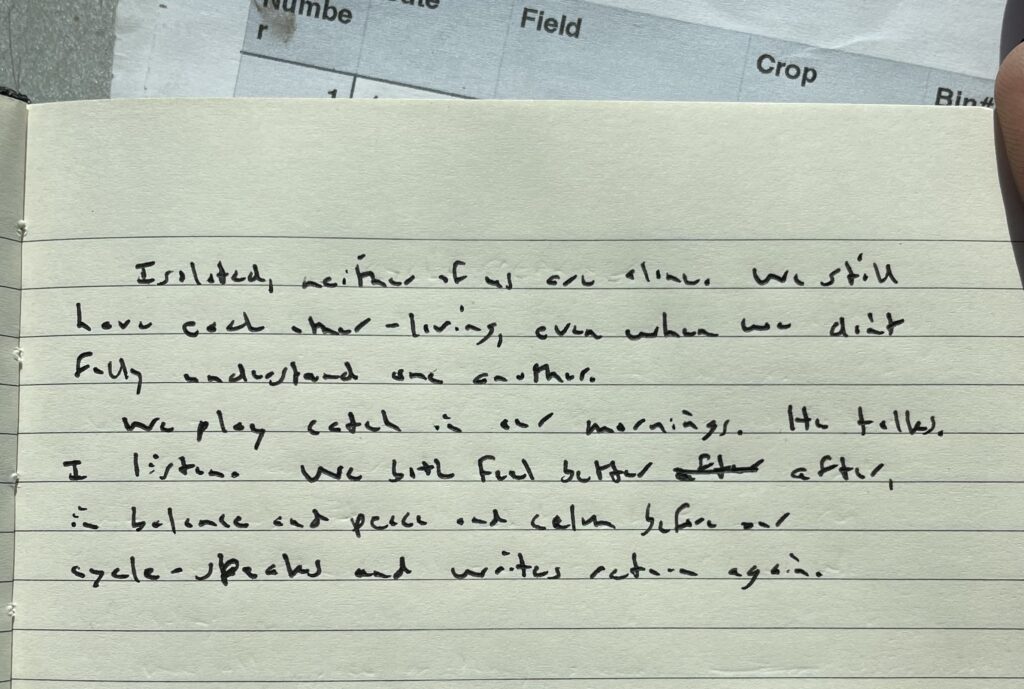 Numbe
r
Field
Crop
Bin#
1
Isolated, neither of us are alone. We still
have each other - living, even when we don't
fully understand one another.
We play catch in our mornings. He talks.
I listen. We both feel better after after,
in balance and peace and calm before our
cycle-speaks and writes return again.